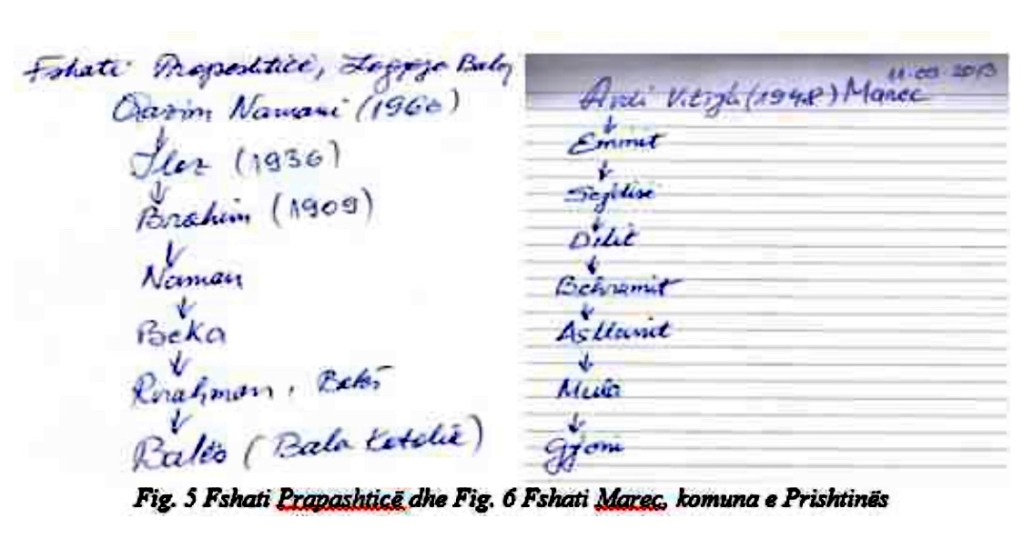 Fshati Prapashticë, Lagjeja Balaj
Qazim Namani (1960)
↓
Ilaz (1936)
↓
Brahim (1909)
↓
Naman
↓
Beka
↓
Rrahman,
↓
Balës (Bala Katolik)
11-09-2013
Avdi Vitija (1948) Marec
↓
Emmit
↓
Sejdisë
↓
Dilit
↓
Behramit
↓
Asllanit
↓
Musa
↓
Gjoni
Fig. 5 Fshati Prapashticë dhe Fig. 6 Fshati Marec, komuna e Prishtinës